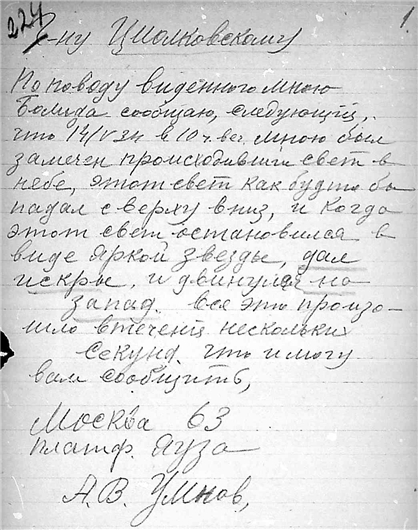 224
1
Г-ну Циолковскому
По поводу виденного мною
болида сообщаю, следующий,
что 14/V 34 в 10 ч. веч. мною был
замечен происходивший свет в
небе, этот свет как будто бы
падал сверху вниз, и когда
этот свет остановился в
виде яркой звезды, дал
искры, и двинулся на
запад. все это произо-
шло втечении нескольких
секунд. что и могу
вам сообщить,
Москва 63
платф. Яуза
А. В. Умнов,